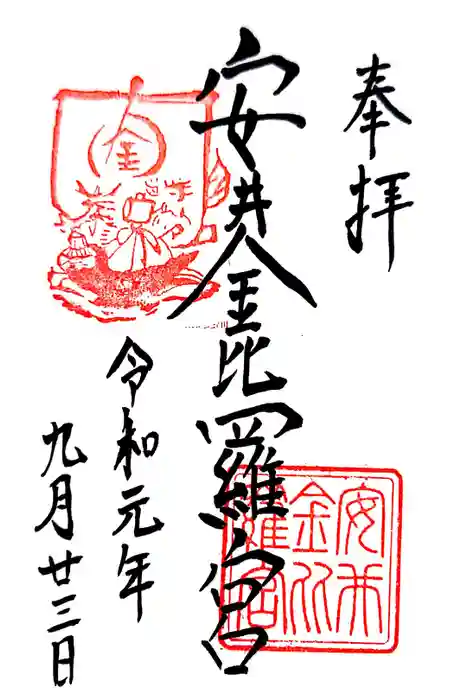 奉拝
安井金毘羅宮
令和元年
九月廿三日
金
安井
金比
羅宮